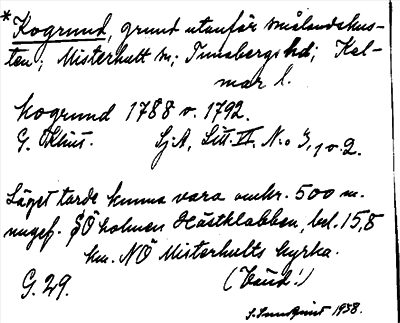 * Kogrund, grund utanför smålandskus-
ten; Misterhult sn; Tunabergs hd; Kal-
mar l.
kogrund 1788 o. 1792.
G. Öklint. Sj.A, Litt. VI, N:o 3, 1 o 2.
Läget torde kunna vara omkr. 500 m.
ungef. SÖ holmen Hästklabben, bel. 15,8
km. NÖ Misterhults kyrka.
G. 29.
S. Lundqvist 1938.